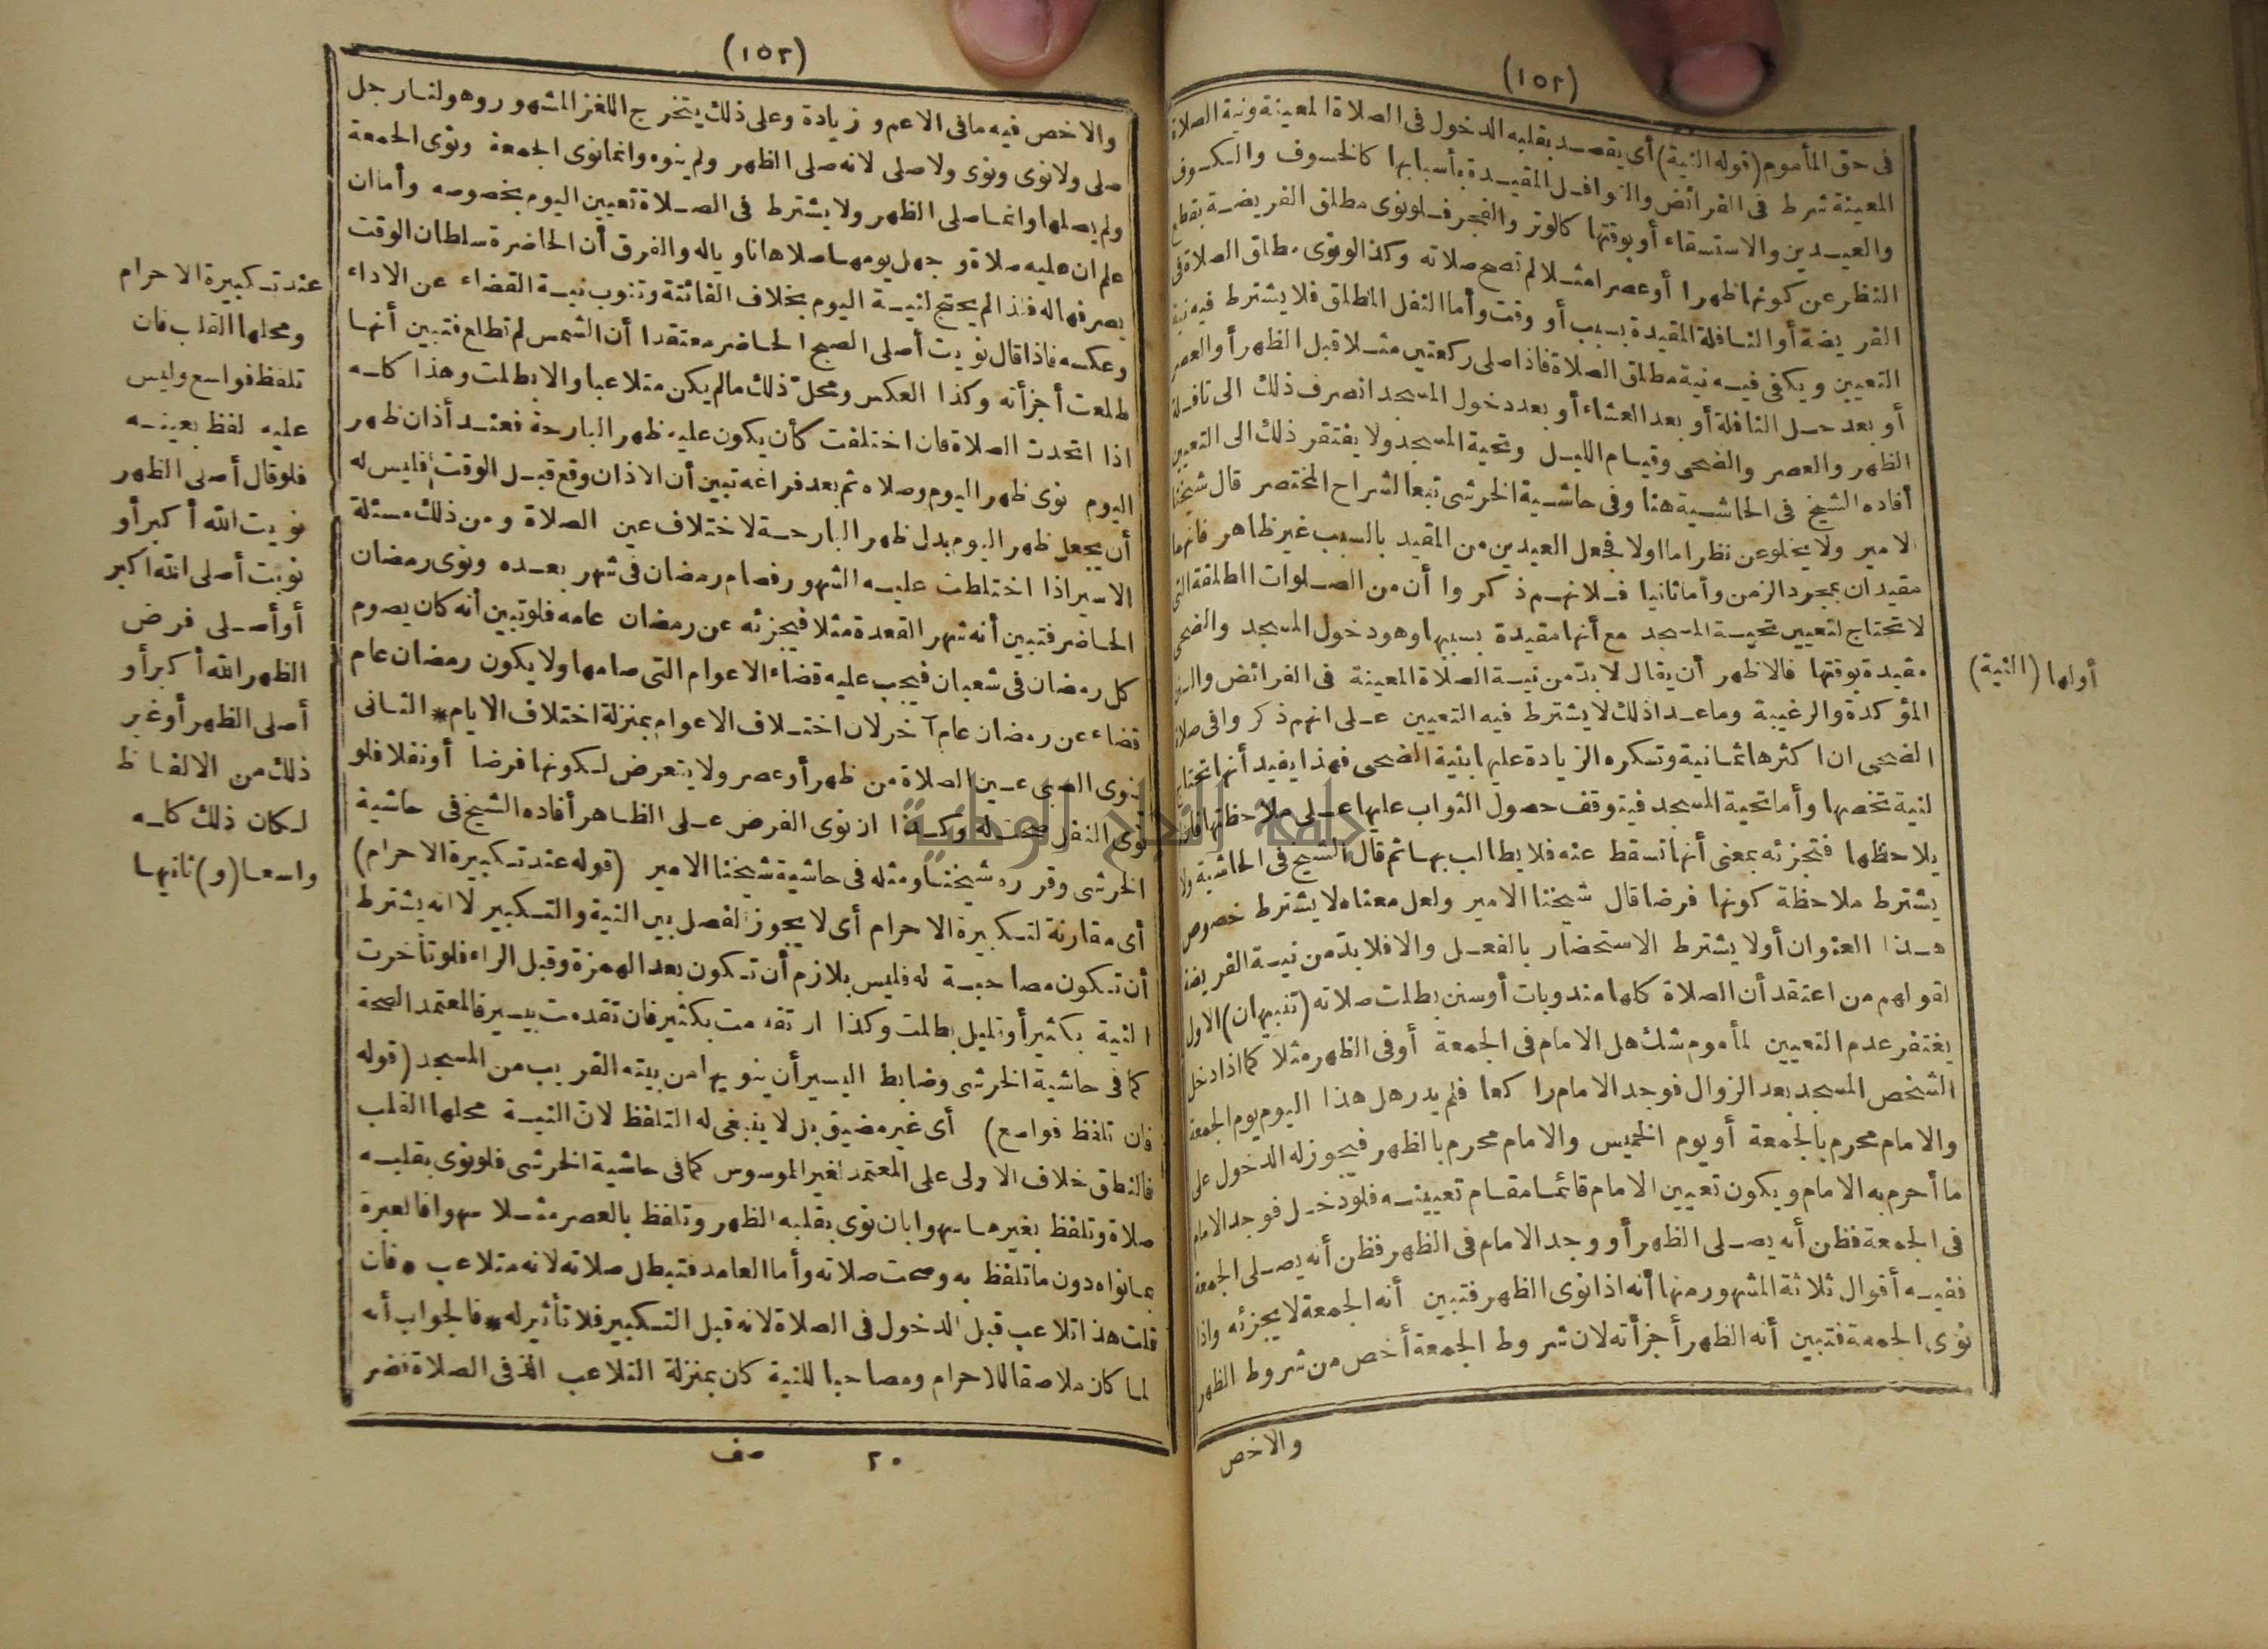 (١٥٢)
فى حق المأموم (قوله النية) أى يقصد بقلبه الدخول فى الصلاة المعينة ونية الصلاة
المعينة شرط فى الفرائض والنوافل المقيدة بأسبابها كالخسوف والكسوف
والعيدين والاستسقاء أو بوقتها كالوتر والفجر فلو نوى مطلق الفريضة بقطع
النظر عن كونها ظهرا أو عصرا مثلا لم تصح صلاته وكذا لو نوى مطلق الصلاة فى
الفريضة أو النافلة المقيدة بسبب أو وقت وأما النفل المطلق فلا يشترط فيه نية
التعيين ويكفى فيه نية مطلق الصلاة فاذا صلى ركعتين مثلا قبل الظهر أو العصر
أو بعد حل النافلة أو بعد العشاء أو بعد دخول المسجد انصرف ذلك الى نافلة
الظهر والعصر والضحى وقيام الليل وتحية المسجد ولا يفتقر ذلك الى التعيين
أفاده الشيخ فى الحاشية هنا وفى حاشية الخرشى تبعا لشراح المختصر قال شيخنا
الامير ولا يخلو عن نظر اما اولا فجعل العيدين من المقيد بالسبب غير ظاهر فانهما
مقيدان بمجرد الزمن وأما ثانيا فلانهم ذكروا أن من الصلوات المطلقة التى
لا تحتاج لتعيين تحية المسجد مع أنها مقيدة بسببها وهو دخول المسجد والضحى
مقيدة بوقتها فالاظهر أن يقال لا بدّ من نية الصلاة المعينة فى الفرائض والسنن
المؤكدة والرغيبة وما عدا ذلك لا يشترط فيه التعيين على انهم ذكروا فى صلاة
الضحى ان اكثرها ثمانية وتكره الزيادة عليها بنية الضحى فهذا يفيد أنها تحتاج
لنية تخصها وأما تحية المسجد فيتوقف حصول الثواب عليها على ملاحظتها فان لم
يلاحظها فتجزئه بمعنى أنها تسقط عنه فلا يطالب بها ثم قال الشيخ فى الحاشية ولا
يشترط ملاحظة كونها فرضا قال شيخنا الامير ولعل معناه لا يشترط خصوص
هذا العنوان أو لا يشترط الاستحضار بالفعل والا فلا بدّ من نية الفريضة
لقولهم من اعتقد أن الصلاة كلها مندوبات أو سنن بطلت صلاته (تنبيهان) الاول
يغتفر عدم التعيين لمأموم شك هل الامام فى الجمعة أو فى الظهر مثلا كما اذا دخل
الشخص المسجد بعد الزوال فوجد الامام راكعا فلم يدر هل هذا اليوم يوم الجمعة
والامام محرم بالجمعة أو يوم الخميس والامام محرم بالظهر فيجوز له الدخول على
ما أحرم به الامام ويكون تعيين الامام قائما مقام تعيينه فلو دخل فوجد الامام
فى الجمعة فظن أنه يصلى الظهر أو وجد الامام فى الظهر فظن أنه يصلى الجمعة
ففيه أقوال ثلاثة المشهور منها أنه اذا نوى الظهر فتبين أنه الجمعة لا يجزئه واذا
نوى الجمعة فتبين أنه الظهر أجزأته لان شروط الجمعة أخص من شروط الظهر
والاخص
أولها (النية)
(١٥٣)
والاخص فيه ما فى الاعم وزيادة وعلى ذلك يتخرج اللغز المشهور وهو لنا رجل
صلى ولا نوى ونوى ولا صلى لانه صلى الظهر ولم ينوه وانما نوى الجمعة ونوى الجمعة
ولم يصلها وانما صلى الظهر ولا يشترط فى الصلاة تعيين اليوم بخصوصه وأما ان
علم ان عليه صلاة وجهل يومها صلاها ناويا له والفرق أن الحاضرة سلطان الوقت
يصرفها له فلذا لم يحتج لنية اليوم بخلاف الفائتة وتنوب نية القضاء عن الاداء
وعكسه فاذا قال نويت أصلى الصبح الحاضر معتقدا أن الشمس لم تطلع فتبين أنها
طلعت أجزأته وكذا العكس ومحلّ ذلك ما لم يكن متلاعبا والا بطلت وهذا كله
اذا اتحدت الصلاة فان اختلفت كأن يكون عليه ظهر البارحة فعند أذان ظهر
اليوم نوى ظهر اليوم وصلاه ثم بعد فراغه تبين أن الاذان وقع قبل الوقت فليس له
أن يجعل ظهر اليوم بدل ظهر البارحة لاختلاف عين الصلاة ومن ذلك مسئلة
الاسير اذا اختلطت عليه الشهور فصام رمضان فى شهر بعده ونوى رمضان
الحاضر فتبين أنه شهر القعدة مثلا فيجزئه عن رمضان عامه فلو تبين أنه كان يصوم
كل رمضان فى شعبان فيجب عليه قضاء الاعوام التى صامها ولا يكون رمضان عام
قضاء عن رمضان عام آخر لان اختلاف الاعوام بمنزلة اختلاف الايام * الثانى
ينوى الصبى عين الصلاة من ظهر أو عصر ولا يتعرض لكونها فرضا أو نفلا فلو
نوى النفل صحت له وكذا ان نوى الفرض على الظاهر أفاده الشيخ فى حاشية
الخرشى وقرره شيخنا ومثله فى حاشية شيخنا الامير (قوله عند تكبيرة الاحرام)
أى مقارنة لتكبيرة الاحرام أى لا يجوز الفصل بين النية والتكبير لا انه يشترط
أن تكون مصاحبة له فليس بلازم أن تكون بعد الهمزة وقبل الراء فلو تأخرت
النية بكثير أو قليل بطلت وكذا ان تقدمت بكثير فان تقدمت بيسير فالمعتمد الصحة
كما فى حاشية الخرشى وضابط اليسير أن ينويها من بيته القريب من المسجد (قوله
فان تلفظ فواسع) أى غير مضيق بل لا ينبغى له التلفظ لان النية محلها القلب
فالنطق خلاف الاولى على المعتمد لغير الموسوس كما فى حاشية الخرشى فلو نوى بقلبه
صلاة وتلفظ بغيرها سهوا بان نوى بقلبه الظهر وتلفظ بالعصر مثلا سهوا فالعبرة
بما نواه دون ما تلفظ به وصحت صلاته وأما العامد فتبطل صلاته لانه متلاعب * فان
قلت هذا تلاعب قبل الدخول فى الصلاة لانه قبل التكبير فلا تأثير له * فالجواب أنه
لما كان ملاصقا للاحرام ومصاحبا للنية كان بمنزلة التلاعب الذى فى الصلاة فضر
٢٠ صف
عند تكبيرة الاحرام
ومحلها القلب فان
تلفظ فواسع وليس
عليه لفظ بعينه
فلو قال أصلى الظهر
نويت الله أكبر أو
نويت أصلى الله أكبر
أو أصلى فرض
الظهر الله أكبر أو
أصلى الظهر أو غير
ذلك من الالفاظ
لكان ذلك كله
واسعا (و) ثانيها